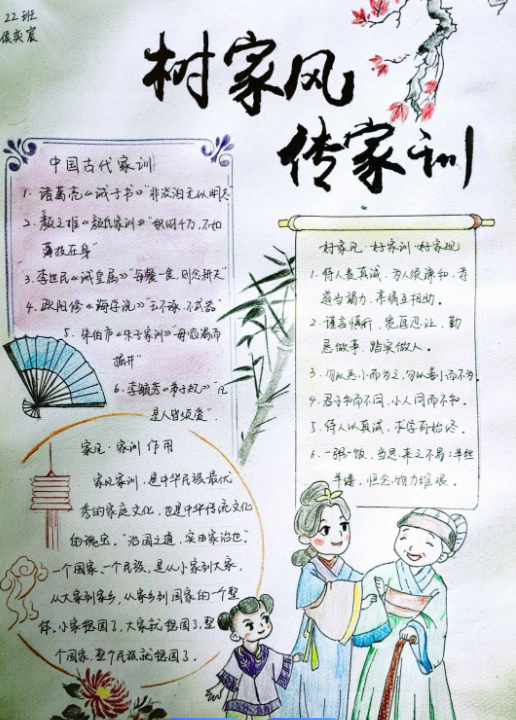 22班
侯奕宸
树家风
传家训
中国古代家训
1. 诸葛亮《诫子书》"非淡泊无以明志"
2. 颜之推《颜氏家训》"积财千万,不如
薄技在身"
3. 李世民《诫皇属》"每餐一食,则念耕夫"
4. 欧阳修《诲学说》"玉不琢,不成器"
5. 朱伯庐《朱子家训》"毋临渴而
掘井"
6. 李毓秀《弟子规》"凡
是人皆须爱".
好家风·好家训·好家规
1. 待人要真诚,为人须谦和,孝
庭当竭力,亲情互相助。
2. 谨言慎行,宽厚忍让,勤
恳做事,踏实做人。
3. 勿以恶小而为之,勿以善小而不为。
4. 君子和而不同,小人同而不和。
5. 待人以真诚,求学有始终。
6. 一粥一饭,当思来之不易;半丝
半缕,恒念物力维艰。
家风·家训 作用
家风家训,是中华民族最优
秀的家庭文化,也是中华传统文化
的瑰宝。"治国之道,实由家治也.
一个国家,一个民族,是从小家到大家,
从大家到家乡,从家乡到国家的一个整
体。小家稳固了,大家就稳固了,整
个国家,整个民族就稳固了。